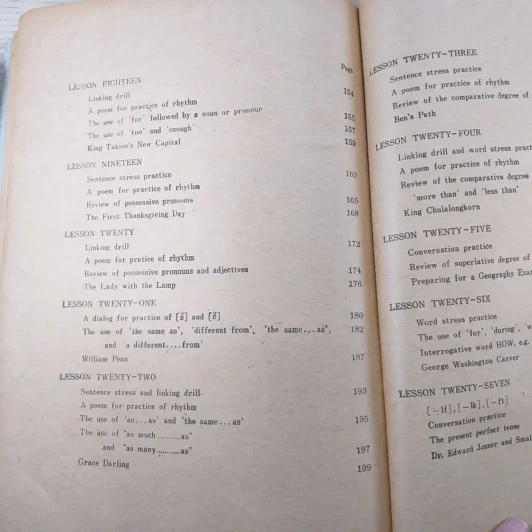 Page
LESSON EIGHTEEN
Linking drill 154
A poem for practice of rhythm
The use of 'for' followed by a noun or pronour 155
The use of 'too' and 'enough' 157
King Taksin's New Capital 159
LESSON NINETEEN
Sentence stress practice 162
A poem for practice of rhythm
Review of possessive pronouns 165
The First Thanksgiving Day 168
LESSON TWENTY
Linking drill 172
A poem for pratice of rhythm
Review of possessive pronouns and adjectives 174
The Lady with the Lamp 176
LESSON TWENTY-ONE
A dialog for practice of and 180
The use of 'the same as', 'different from', 'the same... as', 182
and 'a different....from'
William Penn 187
LESSON TWENTY-TWO
Sentence stress and linking drill 193
A poem for practice of rhythm
The use of 'as...as' and 'the same...as' 195
The use of "as much ..........as"
and "as many ..........as" 197
Grace Darling 199
LESSON TWENTY-THREE
Sentence stress practice
A poem for practice of rhythm
Review of the comparative degree of
Ben's Path
LESSON TWENTY-FOUR
Linking drill and word stress pract
A poem for practice of rhythm
Review of the comparative degree
'more than' and 'less than'
King Chulalongkorn
LESSON TWENTY-FIVE
Conversation practice
Review of superlative degree of
Preparing for a Geography Exa
LESSON TWENTY-SIX
Word stress practice
The use of 'for', 'during', 'w
Interrogative word HOW, e.g.
George Washington Carver
LESSON TWENTY-SEVEN
[-lf], [-lk], [-ft]
Conversation practice
The present perfect tense
Dr. Edward Jenner and Smal